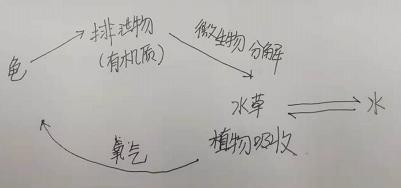 龟
排泄物
(有机质)
微生物分解
水草
水
植物吸收
氧气